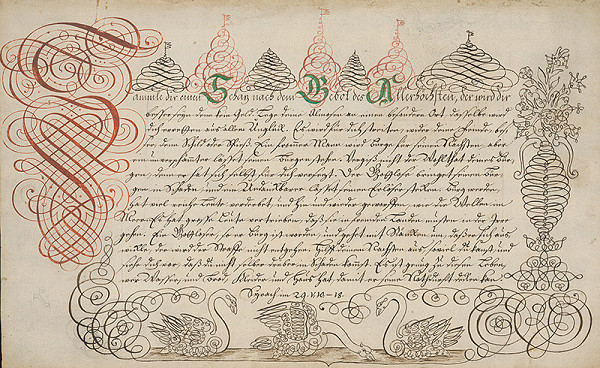 Sammle dir einen Schatz nach dem Gebot des Allerhöchsten, der wird dir
besser seyn denn kein Gold. Lege deine Almosen an einen besondern Ort dasselbe wird
dich erretten aus allem Unglück. Es wird für dich streiten, wider deine Feinde, bes=
ser, denn Schild oder Spieß. Ein frommer Mann wird Bürge für seinen Nächsten, aber
ein unverschämter lässet seinen Bürgen stehen. Vergiß nicht der Wohlthat deines Bür=
gen, denn er hat sich selbst für dich versetzt. Der Gottlose bringet seinen Bür=
gen, in Schaden, und ein Undankbarer lässet seinen Erlöser stecken. Bürg werden,
hat viel reiche Leute verderbet und hin und wieder geworffen, wie die Wellen im
Meer. Es hat große Leute vertrieben, daß sie in fremden Landen müssen in der Irre
gehen. Ein Gottloser, so er Bürg ist worden, und gehet mit Ränken um, daß er sich aus=
wickle, der wird der Straffe nicht entgehen. Hilf deinem Nächsten aus, soviel du kanst, und
siehe dich vor, daß du nicht selbst drüber in Schaden komst. Es ist genug zu diesem Leben,
wer Wasser, und Brod, Kleider und Haus hat, damit er seine Nothdurft decken kan.
Syrach im 29. v.